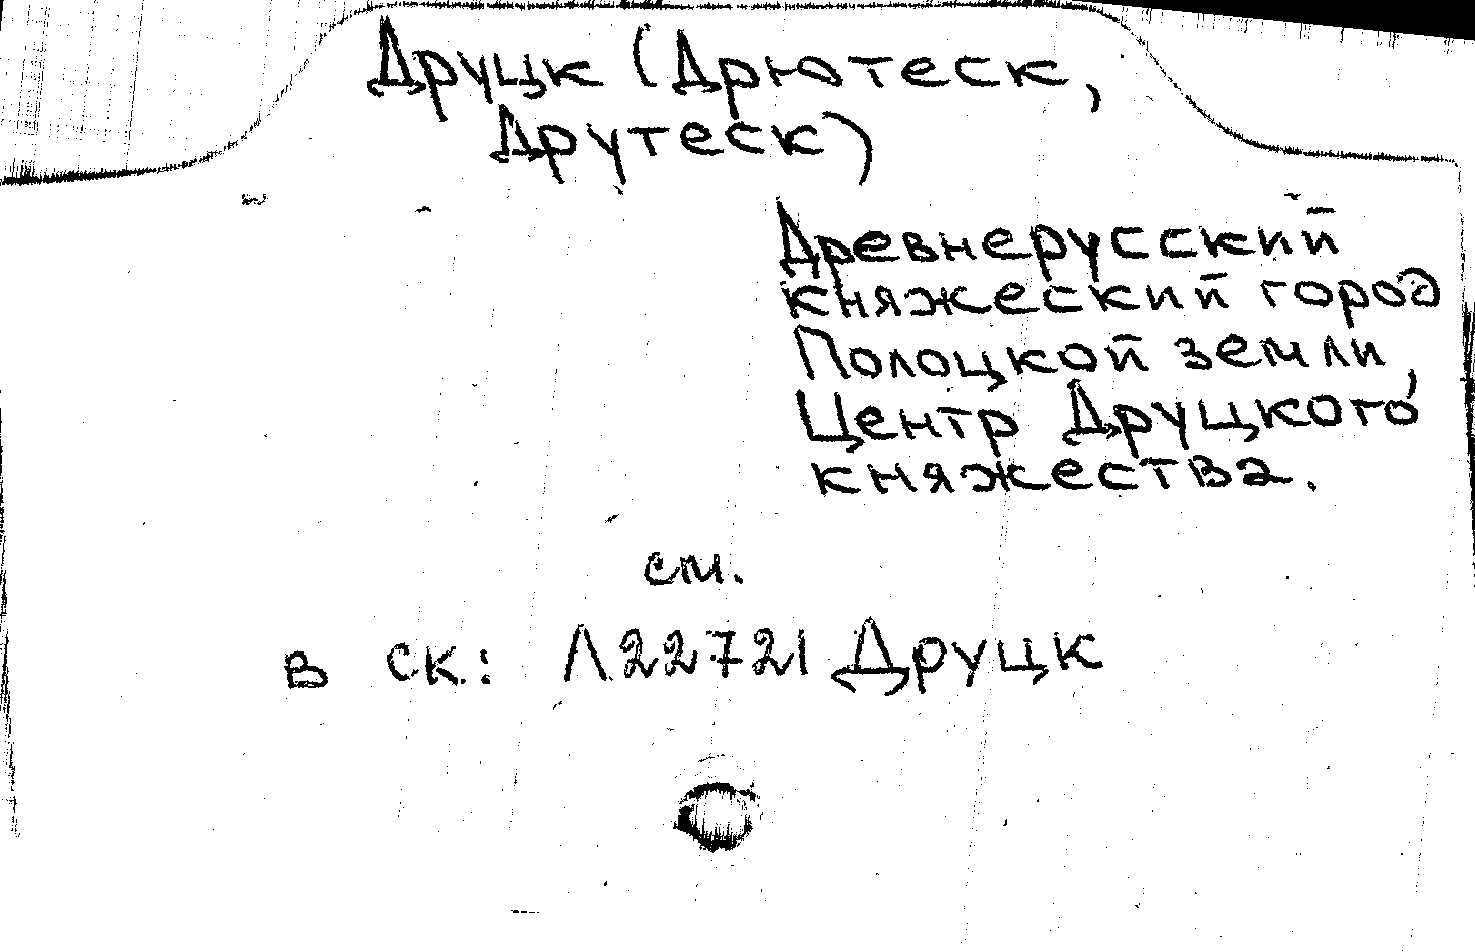 Друцк (Дрютеск,
Друтеск)
Древнерусский
княжеский город
Полоцкой земли,
Центр Друцкого
княжества.
см.
в ск: Л22721 Друцк